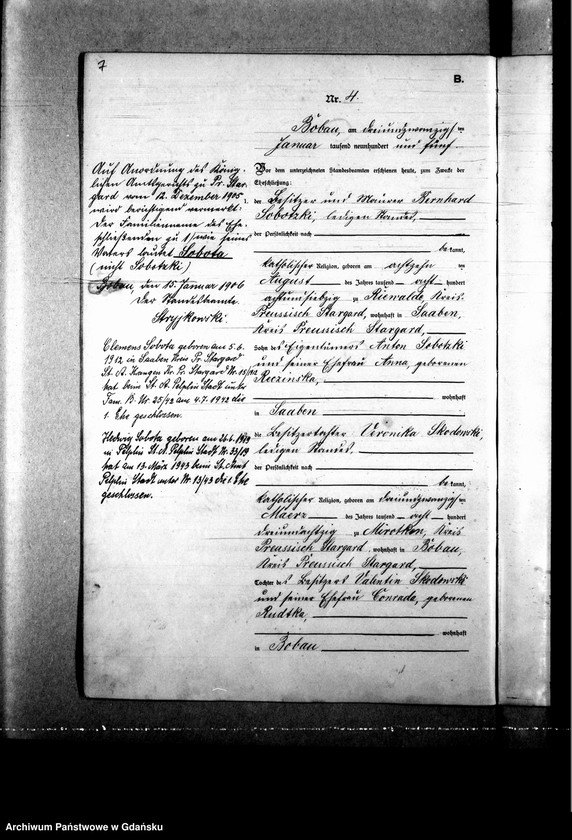 7
B.
Nr. 4.
Bobau, am dreiundzwanzigsten
Januar tausend neunhundert und fünf
Auf Anordnung des König-
lichen Amtsgerichts zu Pr. Star-
gard vom 12. Dezember 1905
wird berichtigend vermerkt:
Der Familienname des Ehe-
schließenden zu 1 wie seines
Vaters lautet Sobota
(nicht Sobotzki)
Bobau, den 15. Januar 1906
Der Standesbeamte.
Stryjkowski.
Clemens Sobota geboren am 5.6.
1912 in Saaben Kreis Pr. Stargard
hat beim St. A. Pelplin Stadt unter
Fam. B. Nr. 25/42 am 4.7.1942 die
1. Ehe geschlossen.
Hedwig Sobota geboren am 26.6.1919
in Pelplin St. A. Pelplin Stadt Nr. 33/19
hat am 13. März 1943 beim St. Amt
Pelplin Stadt unter Nr. 13/43 die 1. Ehe
geschlossen.
Vor dem unterzeichneten Standesbeamten erschienen heute, zum Zwecke der
Eheschließung:
der Besitzer und Maurer Bernhard
Sobotzki, ledigen Standes,
der Persönlichkeit nach
be kannt,
katholischer Religion, geboren am achtzehn ten
August des Jahres tausend acht hundert
achtundsiebzig zu Riewalde, Kreis
Preussisch Stargard, wohnhaft in Saaben,
Kreis Preussisch Stargard,
Sohn des Eigentümers Anton Sobotzki
und seiner Ehefrau Anna, geborenen
wohnhaft
in Saaben
die Besitzertochter Veronika Skodowski,
ledigen Standes,
der Persönlichkeit nach
be kannt,
katholischer Religion, geboren am dreiundzwanzigsten
Maerz des Jahres tausend acht hundert
dreiundachtzig zu Mirotken, Kreis
Preussisch Stargard, wohnhaft in Bobau,
Kreis Preussisch Stargard,
Tochter des Besitzers Valentin Skodowski
und seiner Ehefrau Conrada, geborenen
Rudtka,
wohnhaft
in Bobau
Archiwum Państwowe w Gdańsku